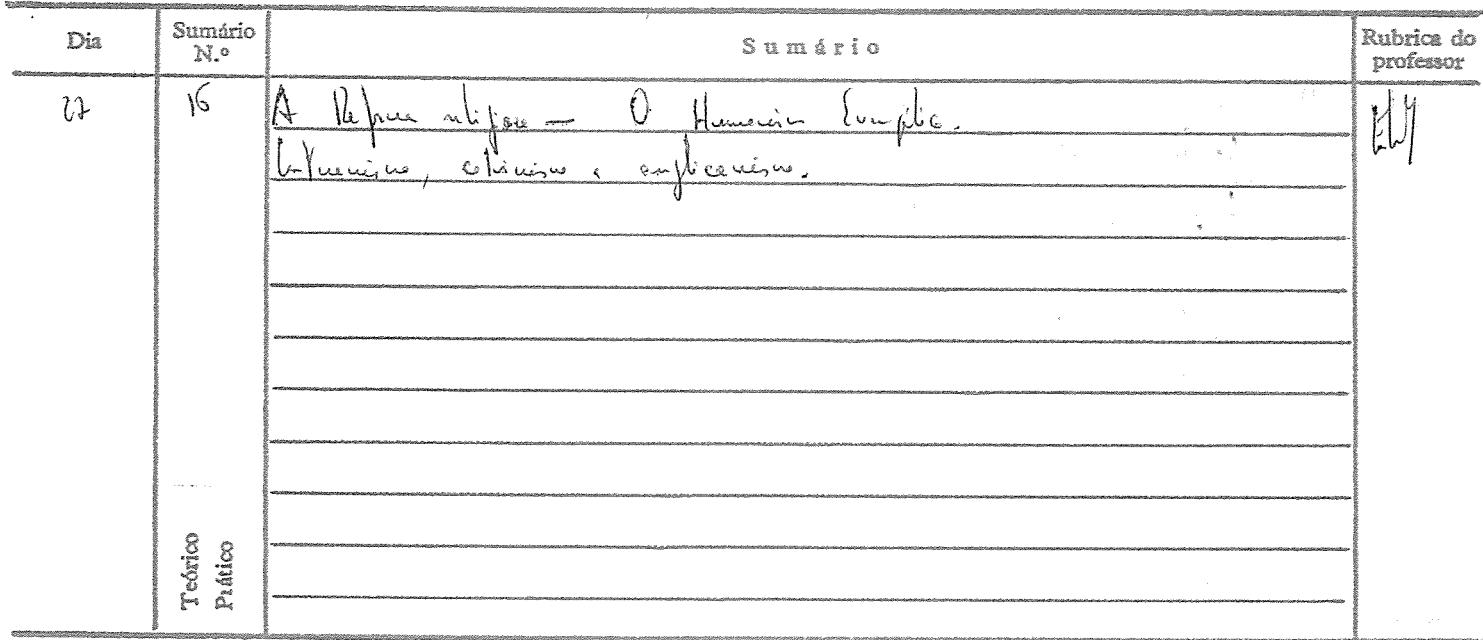 Dia
Sumário N.º
Sumário
Rubrica do professor
27
16
A Reforma religiosa — O Humanismo Evangélico.
Luteranismo, calvinismo e anglicanismo.
Teórico
Prático